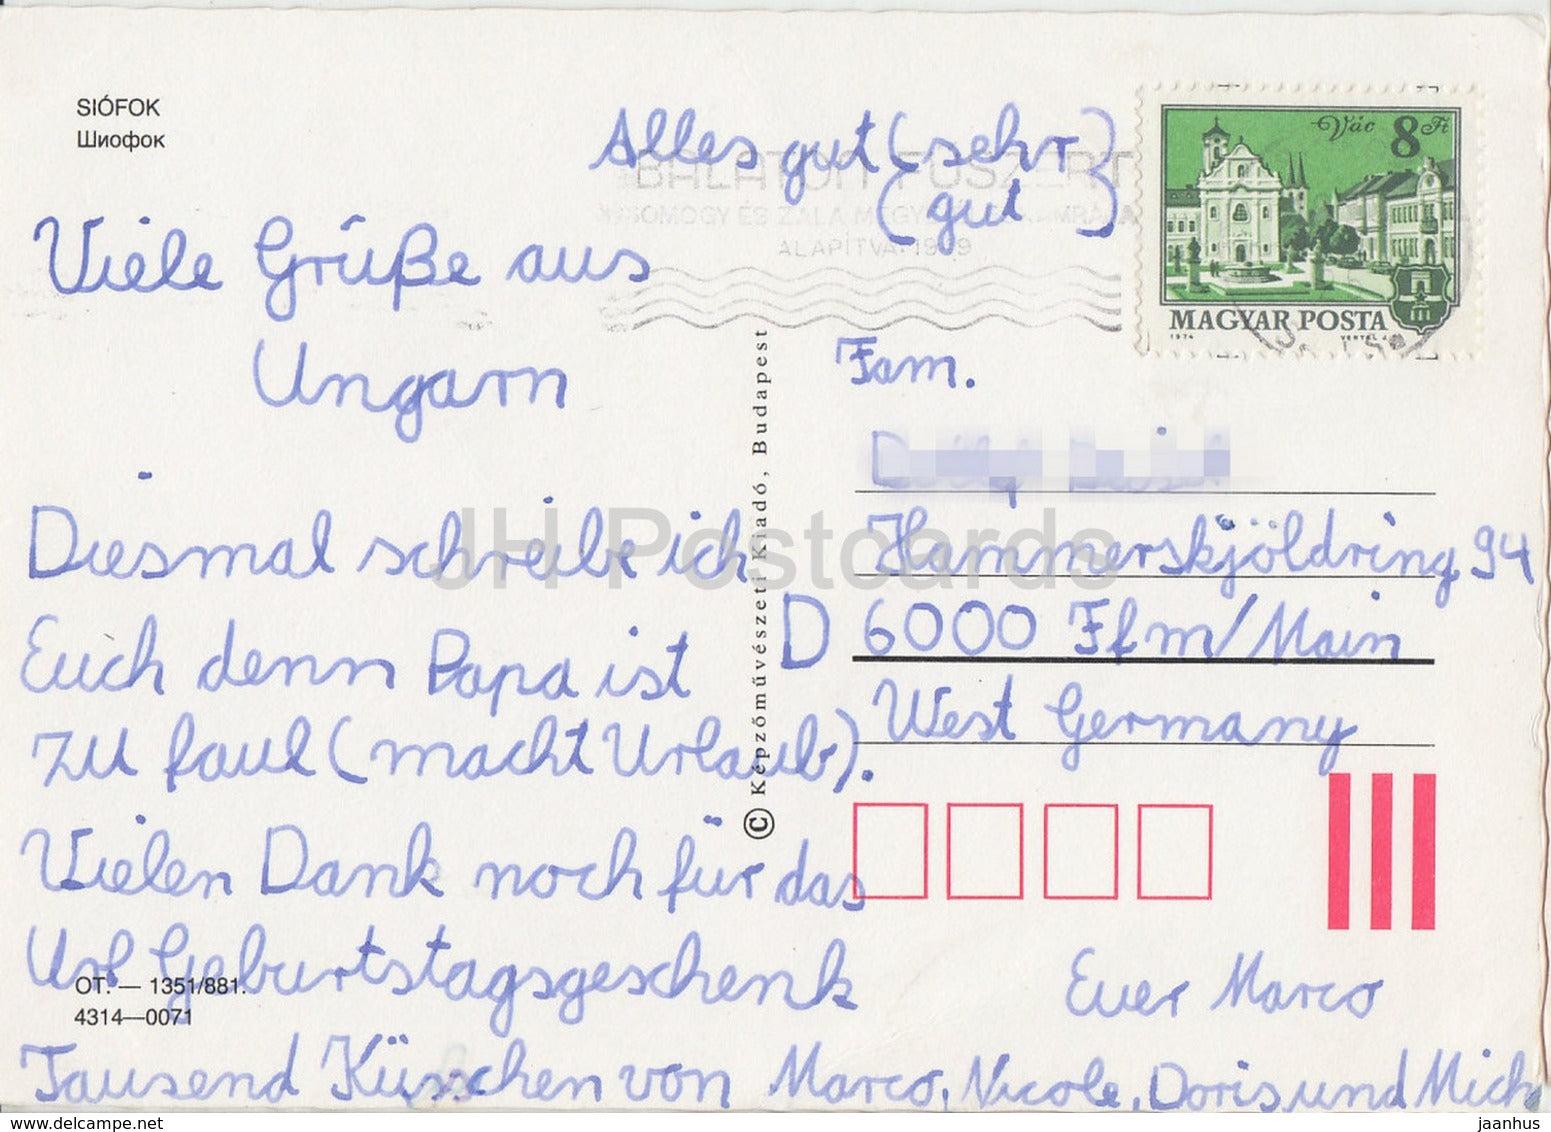 SIÓFOK
Шиофок
Alles gut (sehr)
(gut)
Viele Grüße aus
Ungarn
Diesmal schreibe ich
Euch denn Papa ist
zu faul (macht Urlaub).
Vielen Dank noch für das
Url Geburtstagsgeschenk
Tausend Küsschen von Marco, Nicole, Doris und Mich
Euer Marco
OT. — 1351/881.
4314—0071
© Képzőművészeti Kiadó, Budapest
BALATON FÜSZÉRT
SOMOGY ÉS ZALA
ALAPÍTVA:
Vác 8 Ft
MAGYAR POSTA
1974 VERTEL J.
Fam.
Hammerskjöldring 94
D 6000 Ffm/Main
West Germany
JH Postcards
www.delcampe.net
jaanhus